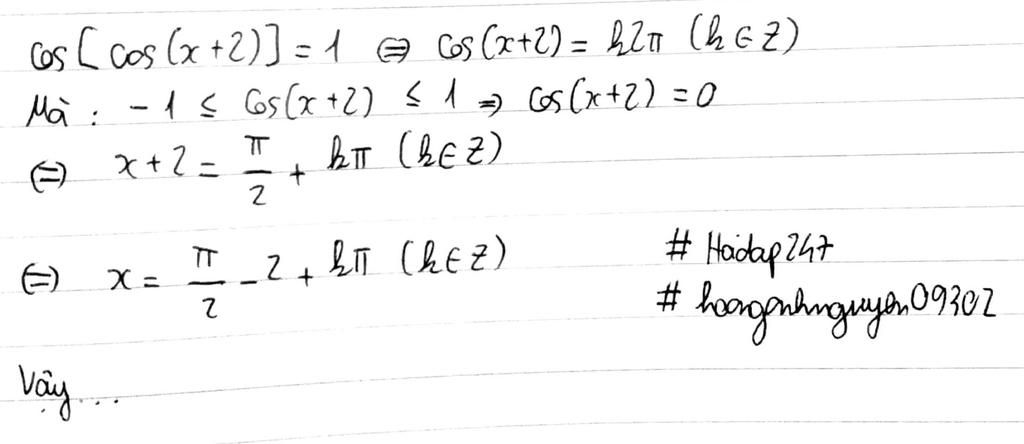 cos[cos(x+2)] = 1 ⇔ cos(x+2) = k2π (k ∈ Z)
Mà : -1 ≤ cos(x+2) ≤ 1 ⇒ cos(x+2) = 0
⇔ x+2 = π/2 + kπ (k ∈ Z)
⇔ x = π/2 - 2 + kπ (k ∈ Z)
# Hoidap247
# hoanganhnguyen09302
Vậy...